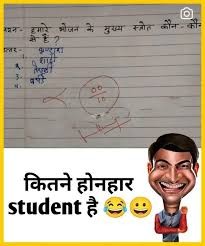 प्रश्न- हमारे भोजन के मुख्य स्त्रोत कौन-कौन
से है ?
उत्तर- 1. भण्डारा
2. शादी
3. तेरहवी
4. बर्थडे
00
10
कितने होनहार
student है 😂😀